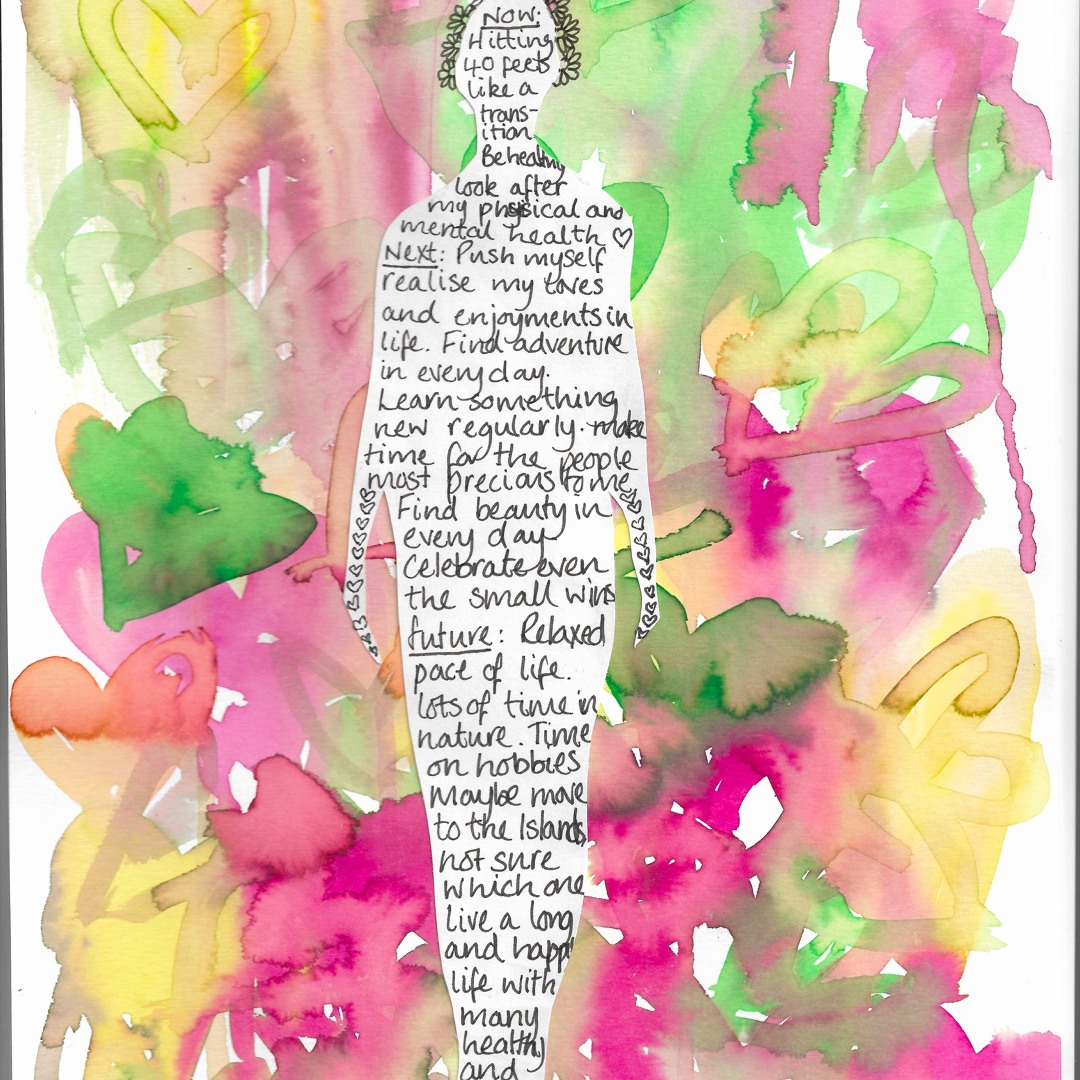 Now:
Hitting
40 feels
like a
trans-
ition.
Be healthy
look after
my physical and
mental health ♡
Next: Push myself
realise my loves
and enjoyments in
life. Find adventure
in every day.
Learn something
new regularly. make
time for the people
most precious to me.
Find beauty in
every day
celebrate even
the small wins
future: Relaxed
pace of life.
lots of time in
nature. Time
on hobbies
Maybe move
to the Islands,
not sure
which one
live a long
and happy
life with
many
healthy
and